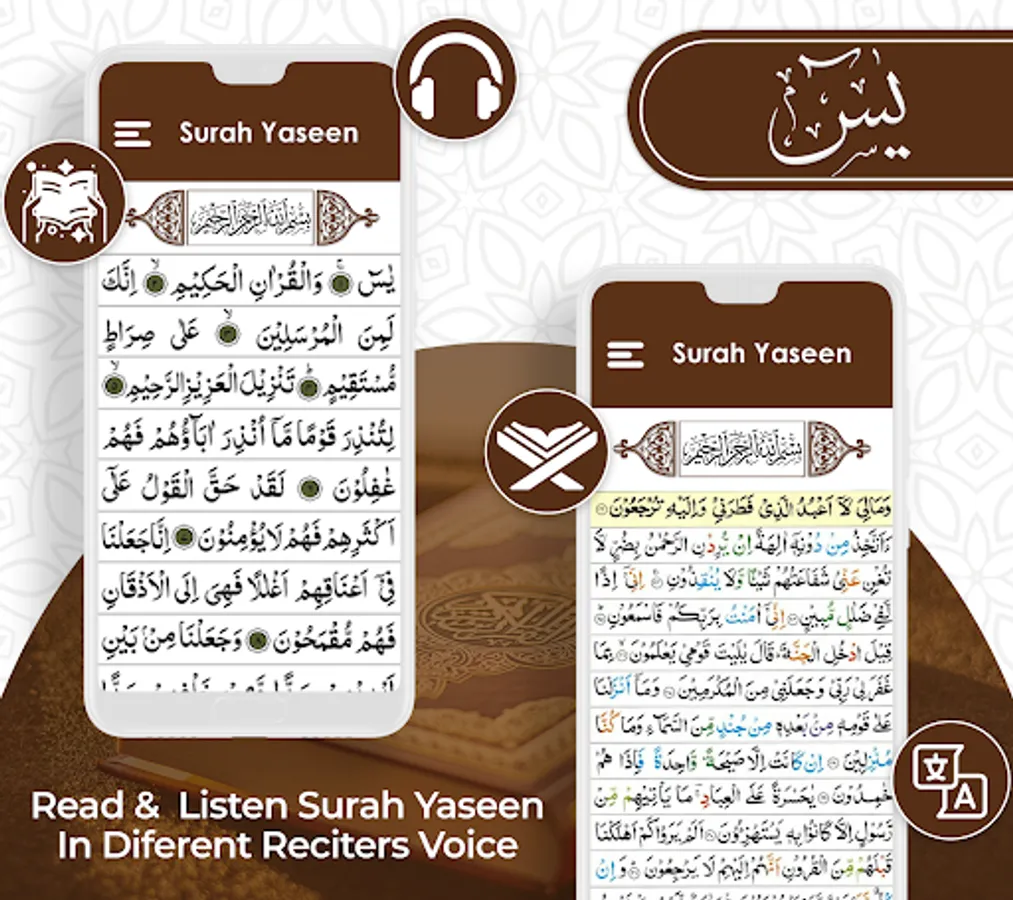 Surah Yaseen
بِسْمِ اللّٰهِ الرَّحْمٰنِ الرَّحِيْمِ
يٰسٓ ۚ ۝ وَالْقُرْاٰنِ الْحَكِيْمِ ۙ ۝ اِنَّكَ
لَمِنَ الْمُرْسَلِيْنَ ۙ ۝ عَلٰى صِرَاطٍ
مُّسْتَقِيْمٍ ؕ ۝ تَنْزِيْلَ الْعَزِيْزِ الرَّحِيْمِ ۙ ۝
لِتُنْذِرَ قَوْمًا مَّاۤ اُنْذِرَ اٰبَآؤُهُمْ فَهُمْ
غٰفِلُوْنَ ۝ لَقَدْ حَقَّ الْقَوْلُ عَلٰۤى
اَكْثَرِهِمْ فَهُمْ لَا يُؤْمِنُوْنَ ۝ اِنَّا جَعَلْنَا
فِيْۤ اَعْنَاقِهِمْ اَغْلٰلًا فَهِىَ اِلَى الْاَذْقَانِ
فَهُمْ مُّقْمَحُوْنَ ۝ وَجَعَلْنَا مِنْۢ بَيْنِ
يٰسٓ
Surah Yaseen
بِسْمِ اللّٰهِ الرَّحْمٰنِ الرَّحِيْمِ
وَمَالِيَ لَاۤ اَعْبُدُ الَّذِيْ فَطَرَنِيْ وَاِلَيْهِ تُرْجَعُوْنَ ۝
ءَاَتَّخِذُ مِنْ دُوْنِهٖۤ اٰلِهَةً اِنْ يُّرِدْنِ الرَّحْمٰنُ بِضُرٍّ لَّا
تُغْنِ عَنِّيْ شَفَاعَتُهُمْ شَيْئًا وَّلَا يُنْقِذُوْنِ ۝ اِنِّيْۤ اِذًا
لَّفِيْ ضَلٰلٍ مُّبِيْنٍ ۝ اِنِّيْۤ اٰمَنْتُ بِرَبِّكُمْ فَاسْمَعُوْنِ ۝
قِيْلَ ادْخُلِ الْجَنَّةَ ؕ قَالَ يٰلَيْتَ قَوْمِيْ يَعْلَمُوْنَ ۝ بِمَا
غَفَرَلِيْ رَبِّيْ وَجَعَلَنِيْ مِنَ الْمُكْرَمِيْنَ ۝ وَمَاۤ اَنْزَلْنَا
عَلٰى قَوْمِهٖ مِنْۢ بَعْدِهٖ مِنْ جُنْدٍ مِّنَ السَّمَآءِ وَمَا كُنَّا
مُنْزِلِيْنَ ۝ اِنْ كَانَتْ اِلَّا صَيْحَةً وَّاحِدَةً فَاِذَا هُمْ
خٰمِدُوْنَ ۝ يٰحَسْرَةً عَلَى الْعِبَادِ ۚ مَا يَاْتِيْهِمْ مِّنْ
رَّسُوْلٍ اِلَّا كَانُوْا بِهٖ يَسْتَهْزِءُوْنَ ۝ اَلَمْ يَرَوْا كَمْ اَهْلَكْنَا
قَبْلَهُمْ مِّنَ الْقُرُوْنِ اَنَّهُمْ اِلَيْهِمْ لَا يَرْجِعُوْنَ ۝ وَاِنْ
文
A
Read & Listen Surah Yaseen
In Diferent Reciters Voice